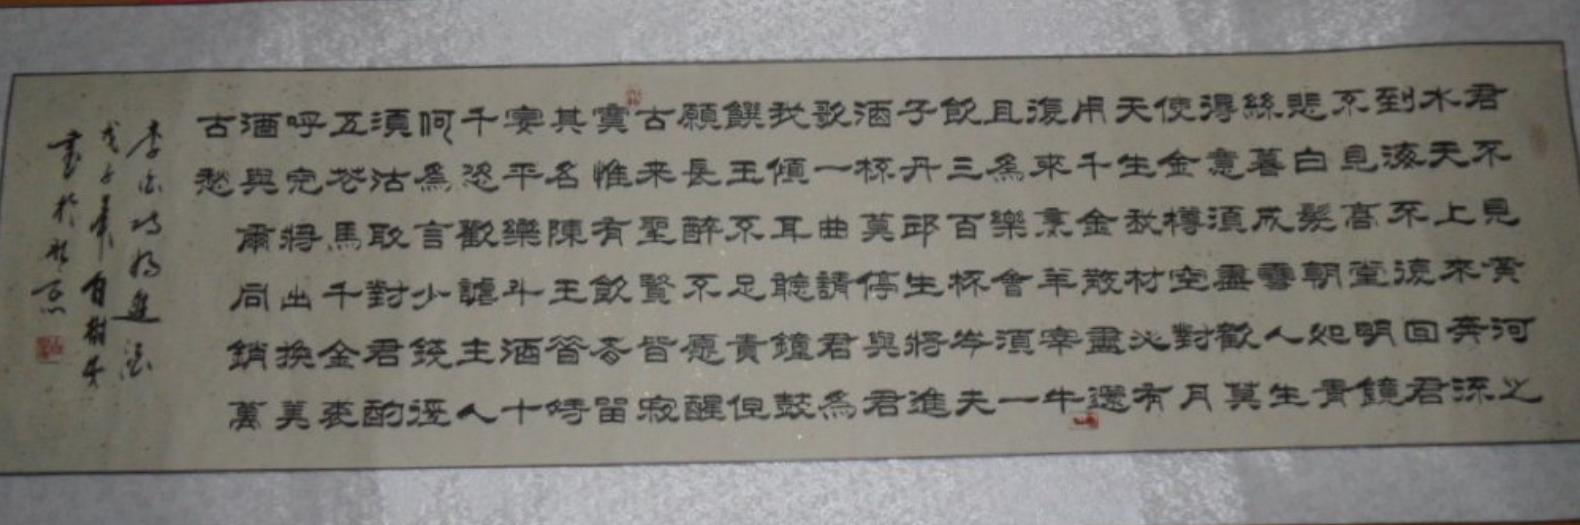 君不見黃河之
水天上來奔流
到海不復回君
不見高堂明鏡
悲白髮朝如青
絲暮成雪人生
得意須盡歡莫
使金樽空對月
天生我材必有
用千金散盡還
復來烹羊宰牛
且為樂會須一
飲三百杯岑夫
子丹邱生將進
酒杯莫停與君
歌一曲請君為
我傾耳聽鐘鼓
饌玉不足貴但
願長醉不愿醒
古来聖賢皆寂
寞惟有飲者留
其名陳王昔時
宴平樂斗酒十
千恣歡謔主人
何為言少錢徑
須沽取對君酌
五花馬千金裘
呼完將出換美
酒與爾同銷萬
古愁
李白詩將進酒
戊子
書於北京